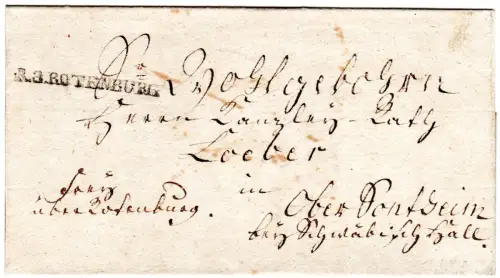 R.3.ROTENBURG
Sr Wohlgebohrn
Herrn Canzley-Rath
Loeber
in
Ober Sontheim
bey Schwäbisch Hall.
frey
über Rotenburg.